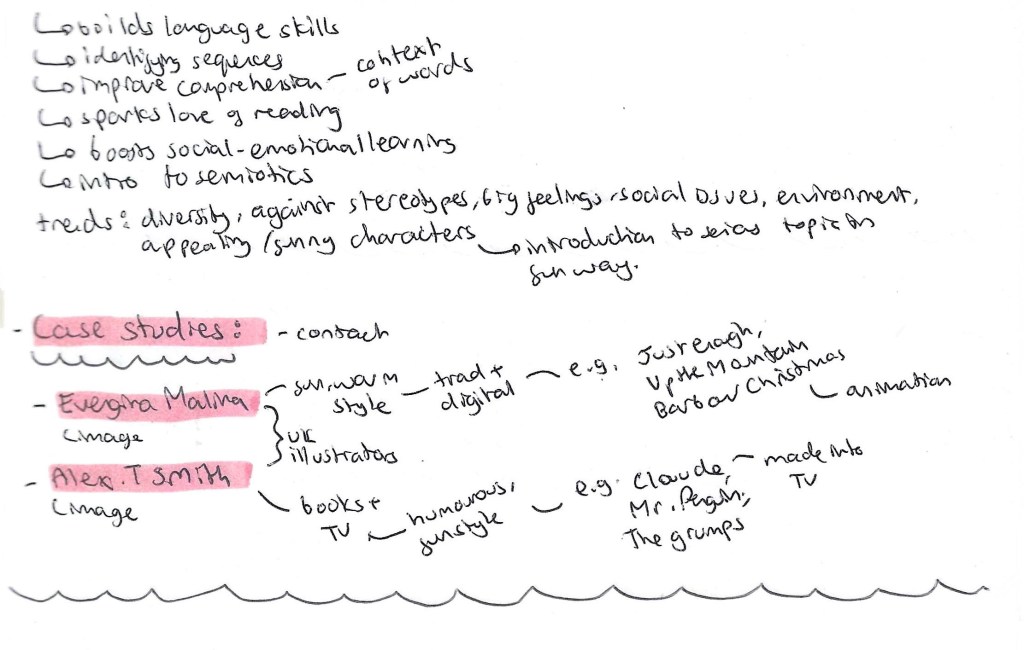 ↳ builds language skills
↳ identifying sequences
↳ improve comprehension – context of words
↳ sparks love of reading
↳ boosts social-emotional learning
↳ intro to semiotics
trends: diversity, against stereotypes, big feelings, social issues, environment,
appealing / funny characters
↳ introduction to topic in
fun way.
- Case studies: - contact
- Evergina Malina
↳ image
fun, warm
style
trad +
digital
e.g. Just enough,
Up the Mountain
Barbar Christmas
↳ animation
UK
illustrators
- Alex.T Smith
↳ image
books +
TV
humourous,
fun style
e.g. Claude,
Mr. Penguin,
The grumps
made into
TV